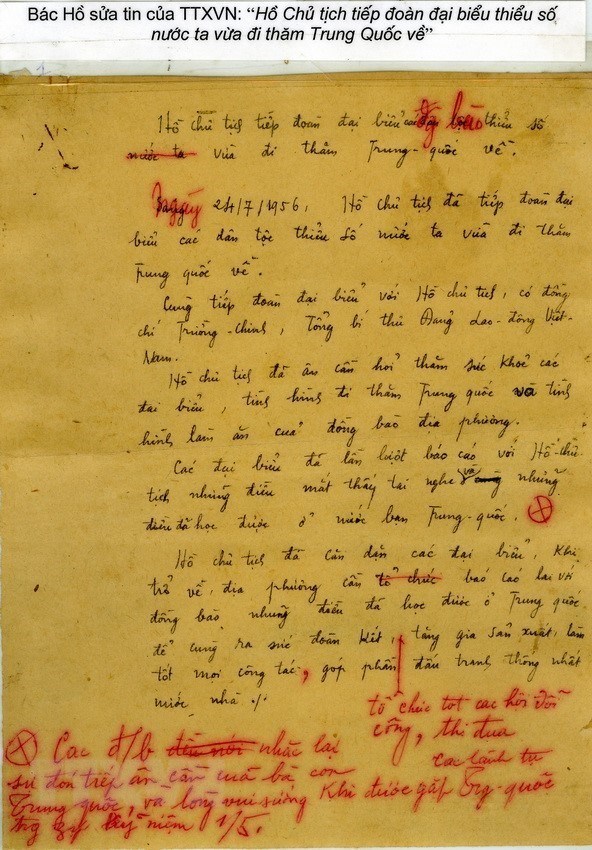 Bác Hồ sửa tin của TTXVN: “Hồ Chủ tịch tiếp đoàn đại biểu thiểu số
nước ta vừa đi thăm Trung Quốc về”
Hồ chủ tịch tiếp đoàn đại biểu đg bào thiểu số
nước ta vừa đi thăm Trung-quốc về.
Ngày 24/7/1956, Hồ chủ tịch đã tiếp đoàn đại
biểu các dân tộc thiểu số nước ta vừa đi thăm
Trung quốc về.
Cùng tiếp đoàn đại biểu với Hồ chủ tịch, có đồng
chí Trường-Chinh, Tổng bí thư Đảng Lao-động Việt-
Nam.
Hồ chủ tịch đã ân cần hỏi thăm sức khoẻ các
đại biểu, tình hình đi thăm Trung quốc và tình
hình làm ăn của đồng bào địa phương.
Các đại biểu đã lần lượt báo cáo với Hồ-chủ-
tịch những điều mắt thấy tai nghe và những
điều đã học được ở nước bạn Trung-quốc.
Hồ chủ tịch đã căn dặn các đại biểu, khi
trở về, địa phương cần tổ chức báo cáo lại với
đồng bào những điều đã học được ở Trung quốc
để cùng ra sức đoàn kết, tăng gia sản xuất, làm
tốt mọi công tác, góp phần đấu tranh thống nhất
nước nhà ./.
tổ chức tot các hội đổi
công, thi đua
Cac đ/b nhắc lại
sự đón tiếp ân cần của bà con
Trung quốc, và lòng vui sướng khi được gặp
các lãnh tụ
Trg-quốc
trg kỷ niệm 1/5.